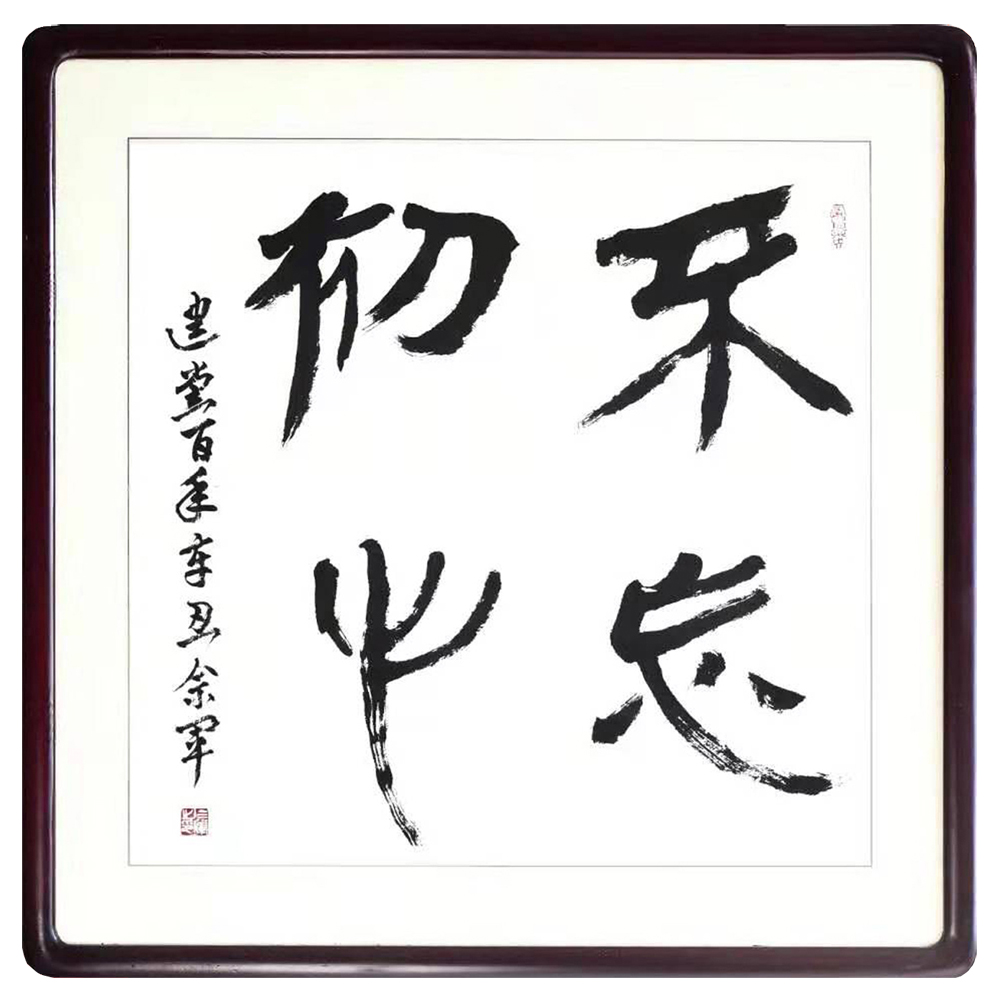 不忘
初心
建党百年辛丑余军